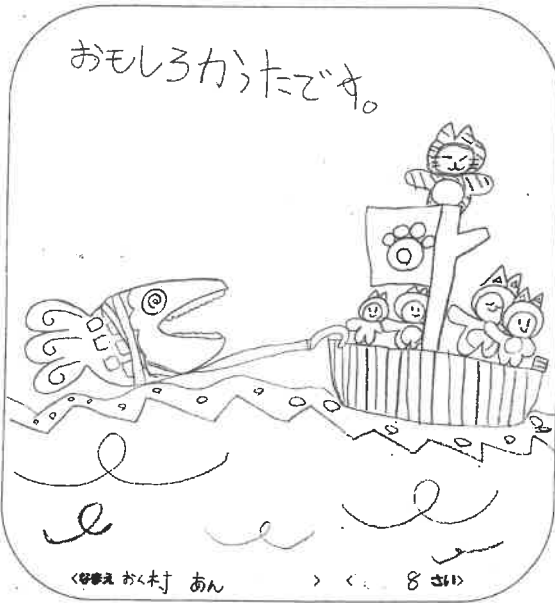 おもしろかったです。
<なまえ おく村 あん > < 8 さい>